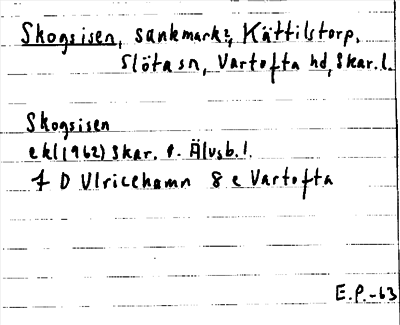 Skogsisen, sankmark, Kättilstorp,
Slöta sn, Vartofta hd, Skar. l.
Skogsisen
ekl (1962) Skar. o. Älvsb. l.
7 D Ulricehamn 8 e Vartofta
E.P.-63